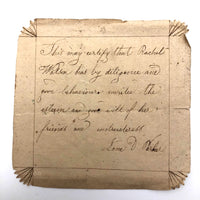 This may certify that Rachel
by diligence and
good behaviour merites the
esteem and good will of her
friends and instructress